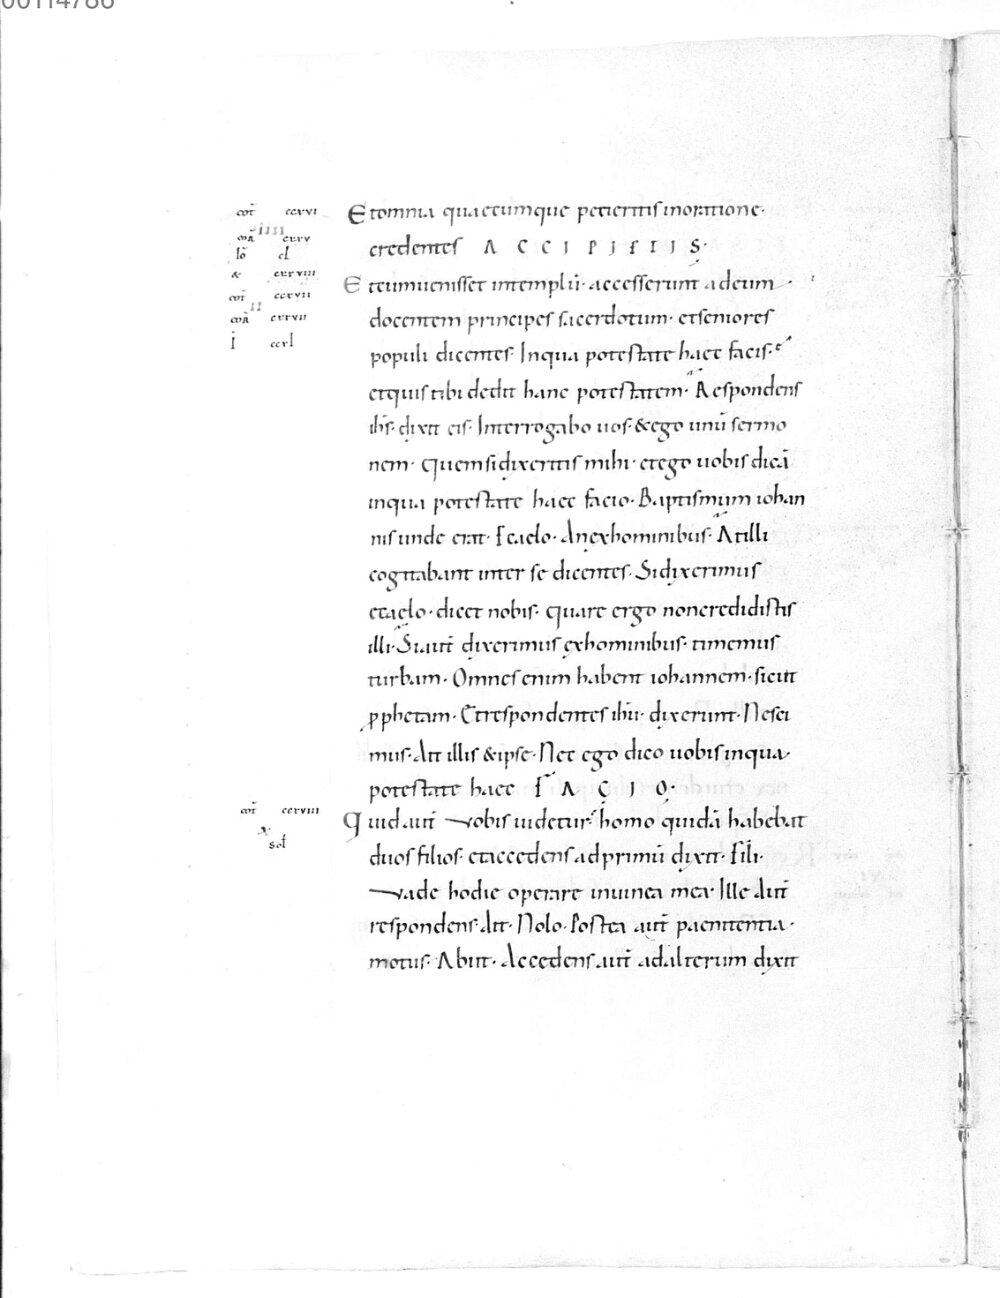 Et omnia quaecumque petieritis in oratione·
credentes A C C I P I E T I S·
Et cum uenisset in templū· accesserunt ad eum·
docentem principes sacerdotum· et seniores
populi dicentes· In qua potestate haec facis·
et quis tibi dedit hanc potestatem· Respondens
ihs· dixit eis· Interrogabo uos· & ego unū sermo
nem· quem si dixeritis mihi· et ego uobis dicā
in qua potestate haec facio· Baptismum iohan
nis unde erat· E caelo· An ex hominibus· At illi
cogitabant inter se dicentes· Si dixerimus
e caelo· dicet nobis· quare ergo non credidistis
illi· Si aut̄ dixerimus ex hominibus· timemus
turbam· Omnes enim habent iohannem· sicut
pphetam· Et respondentes ihū· dixerunt· Nesci
mus· Ait illis & ipse· Nec ego dico uobis in qua
potestate haec F A C I O·
Quid aut̄ uobis uidetur· homo quidā habebat
duos filios· et accedens ad primū dixit· Fili·
uade hodie operare in uinea mea· Ille aut̄
respondens· Ait· Nolo· Postea aut̄ paenitentia·
motus· Abiit· Accedens aut̄ ad alterum dixit
ccxvi
cxxv
lō cl
& cxxviii
ccxvii
cxxvii
I ccxl
ccxviii
x
sol